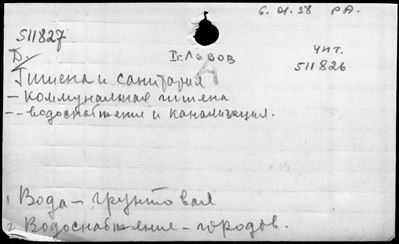 6.01.58 РА.
511827
Б. Iг. Львов чит.
511826
Гигиена и санитария
– коммунальная гигиена
-- водоснабжение и канализация.
1 Вода – грунтовая
2 Водоснабжение – городов.